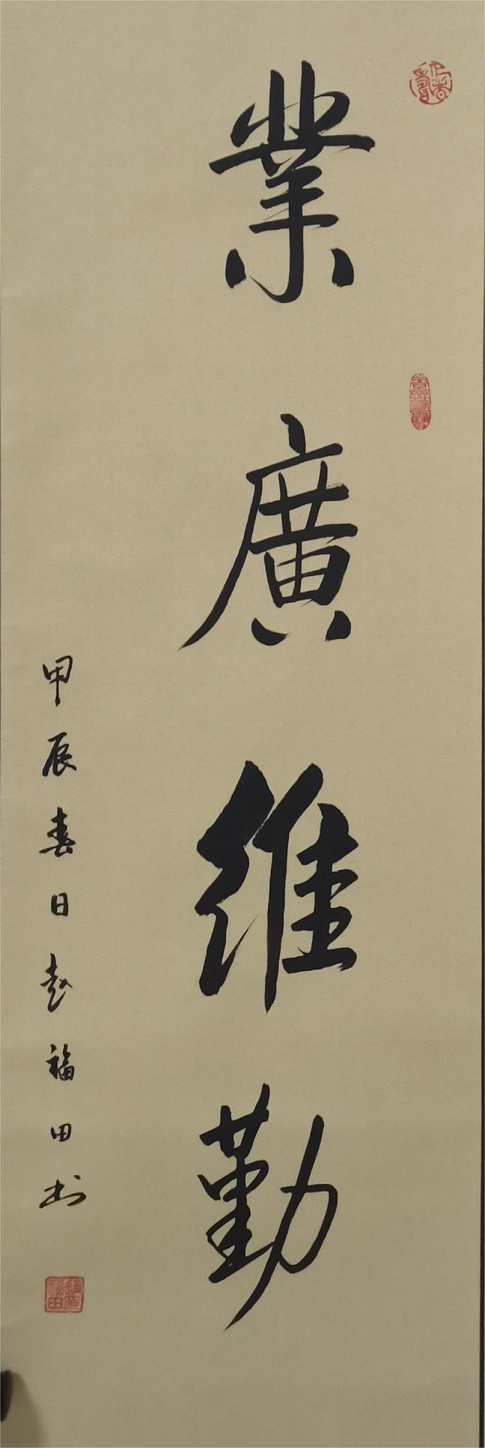 業廣維勤
甲辰春日赵福田书